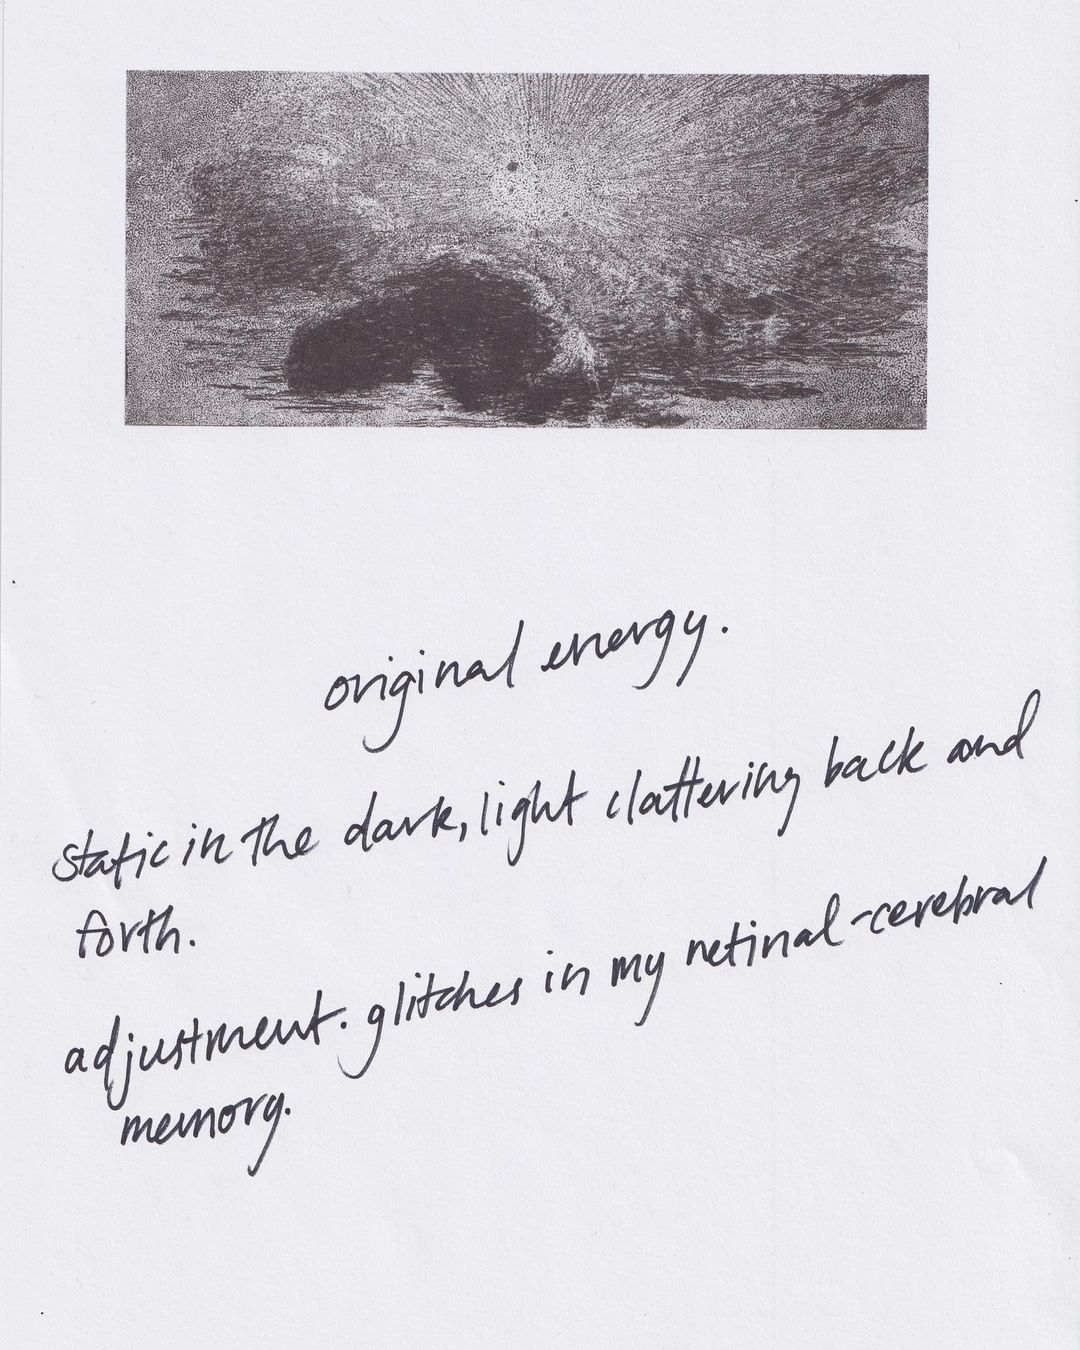 original energy.
static in the dark, light clattering back and
forth.
adjustment. glitches in my retinal-cerebral
memory.